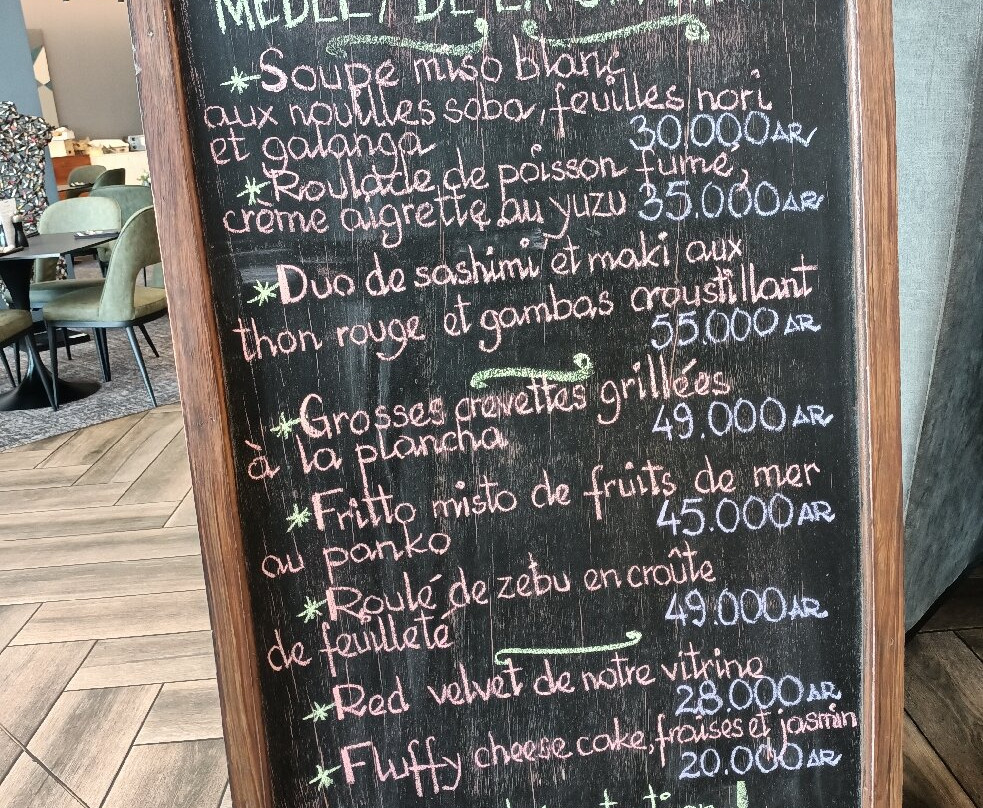 MEDLEY DE LA
*Soupe miso blanc
aux nouilles soba, feuilles nori
et galanga 30.000AR
*Roulade de poisson fumé,
crème aigrette au yuzu 35.000AR
*Duo de sashimi et maki aux
thon rouge et gambas croustillant
55.000 AR
*Grosses crevettes grillées
à la plancha 49.000 AR
*Fritto misto de fruits de mer
au panko 45.000 AR
*Roulé de zébu en croûte
de feuilleté 49.000 AR
*Red velvet de notre vitrine
28.000 AR
*Fluffy cheese cake, fraises et jasmin
20.000 AR